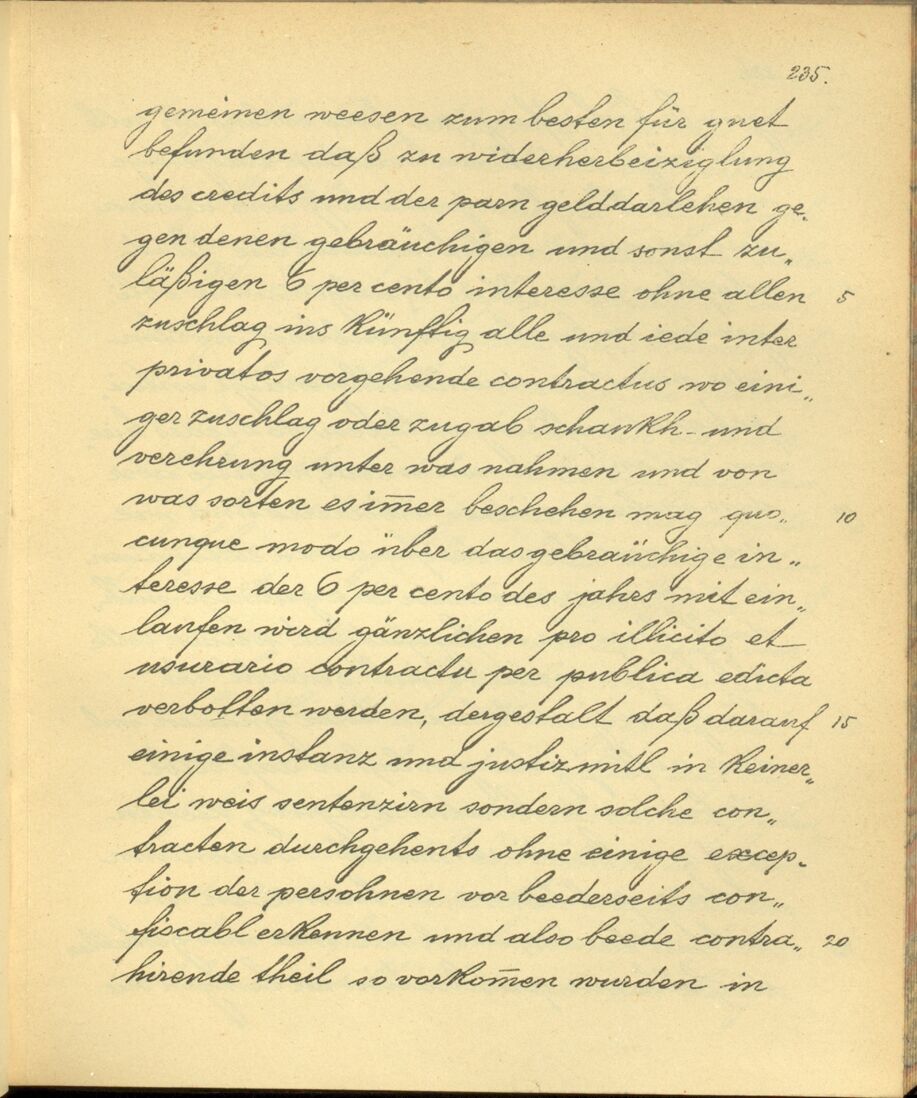 235.
gemeinen weesen zum besten für guet
befunden daß zu widerherbeiziglung
des credits und der parn gelddarlehen ge„
gen denen gebräuchigen und sonst zu„
läßigen 6 per cento interesse ohne allen 5
zuschlag ins künftig alle und iede inter
privatos vorgehende contractus wo eini„
ger zuschlag oder zugab schankh- und
verehrung unter was nahmen und von
was sorten es im̅er beschehen mag quo„ 10
cunque modo über das gebräuchige in„
teresse der 6 per cento des jahrs mit ein„
laufen wird gänzlichen pro illicito et
usurario contractu per publica edicta
verbotten werden, dergestalt daß darauf 15
einige instanz und justizmitl in keiner„
lei weis sentenzirn sondern solche con„
tracten durchgehents ohne einige excep„
tion der persohnen vor beederseits con„
fiscabl erkennen und also beede contra„ 20
hirende theil so vorkom̅en wurden in